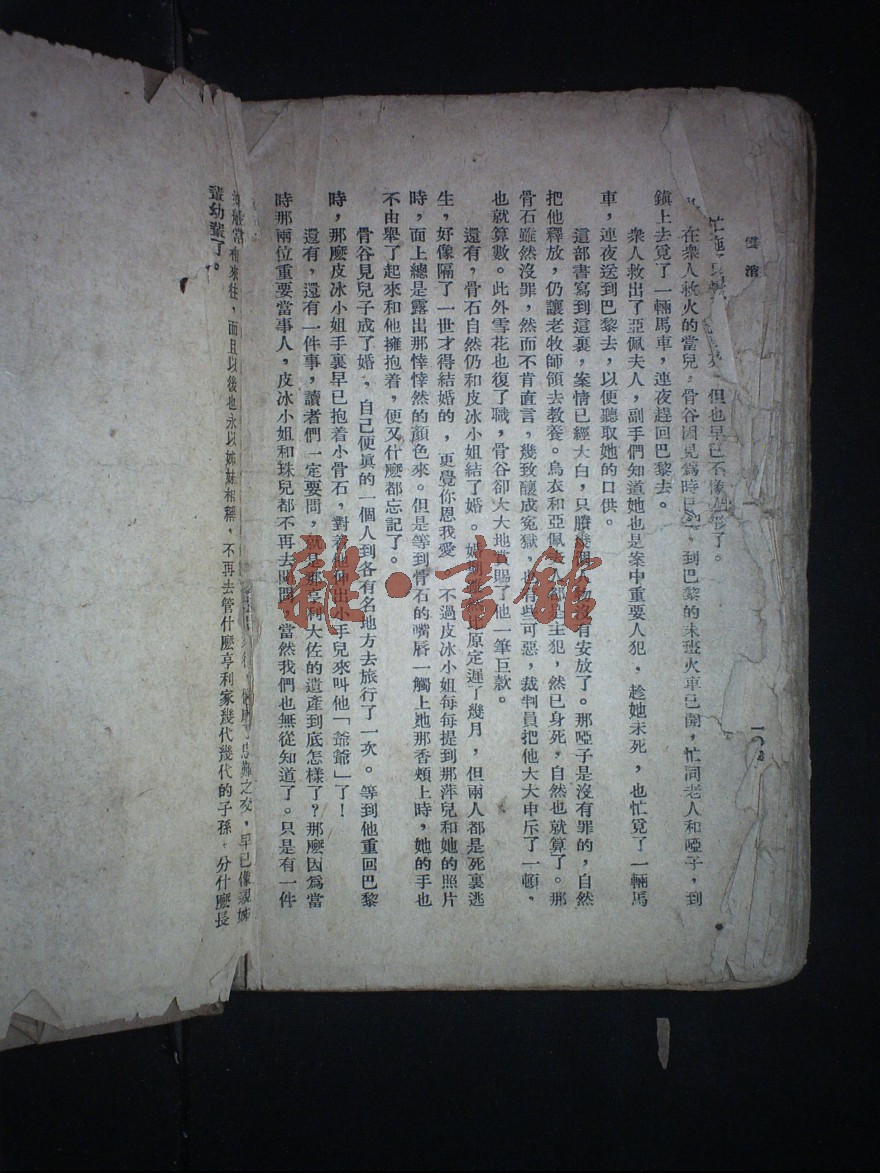 雲消
但也早已不像
在衆人救火的當兒，骨谷因見爲時已，到巴黎的末班火車已開，忙同老人和啞子，到
鎮上去覓了一輛馬車，連夜趕回巴黎去。
衆人救出了亞佩夫人，副手們知道她也是案中重要人犯，趁她未死，也忙覓了一輛馬
車，連夜送到巴黎去，以便聽取她的口供。
這部書寫到這裏，案情已經大白，只賸沒有安放了。那啞子是沒有罪的，自然
把他釋放，仍讓老牧師領去敎養。烏衣和亞佩是主犯，然已身死，自然也就算了。那
骨石雖然沒罪，然而不肯直言，幾致釀成寃獄，些可惡，裁判員把他大大申斥了一頓，
也就算數。此外雪花也復了職，骨谷卻大大地賞賜了他一筆巨款。
還有，骨石自然仍和皮冰小姐結了婚。原定遲了幾月，但兩人都是死裏逃
生，好像隔了一世才得結婚的，更覺你恩我愛。不過皮冰小姐每每提到那萍兒和她的照片
時，面上總是露出那悻悻然的顏色來。但是等到骨石的嘴唇一觸上她那香頰上時，她的手也
不由舉了起來和他擁抱着，便又什麼都忘記了。
骨谷見兒子成了婚，自己便眞的一個人到各有名地方去旅行了一次。等到他重回巴黎
時，那麼皮冰小姐手裏早已抱着小骨石，對着他伸出小手兒來叫他「爺爺」了！
還有，還有一件事，讀者們一定要問，就是那亨利大佐的遺產到底怎樣了？那麼因爲當
時那兩位重要當事人，皮冰小姐和珠兒都不再去聞問，當然我們也無從知道了。只是有一件
患難之交，早已像親姊
來往，而且以後也永以姊妹相稱，不再去管什麼亨利家幾代幾代的子孫，分什麼長
輩幼輩了。
雜·書館